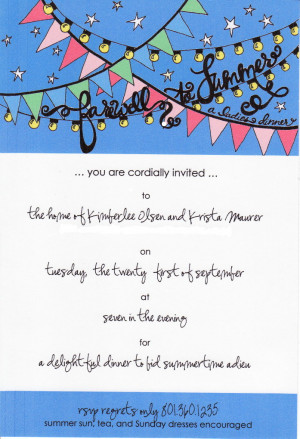 farewell to summer
a ladies dinner
... you are cordially invited ...
to
the home of Kimberlee Olsen and Krista Maurer
on
tuesday, the twenty first of september
at
seven in the evening
for
a delightful dinner to bid summertime adieu
rsvp regrets only 801.360.1235
summer sun, tea, and Sunday dresses encouraged